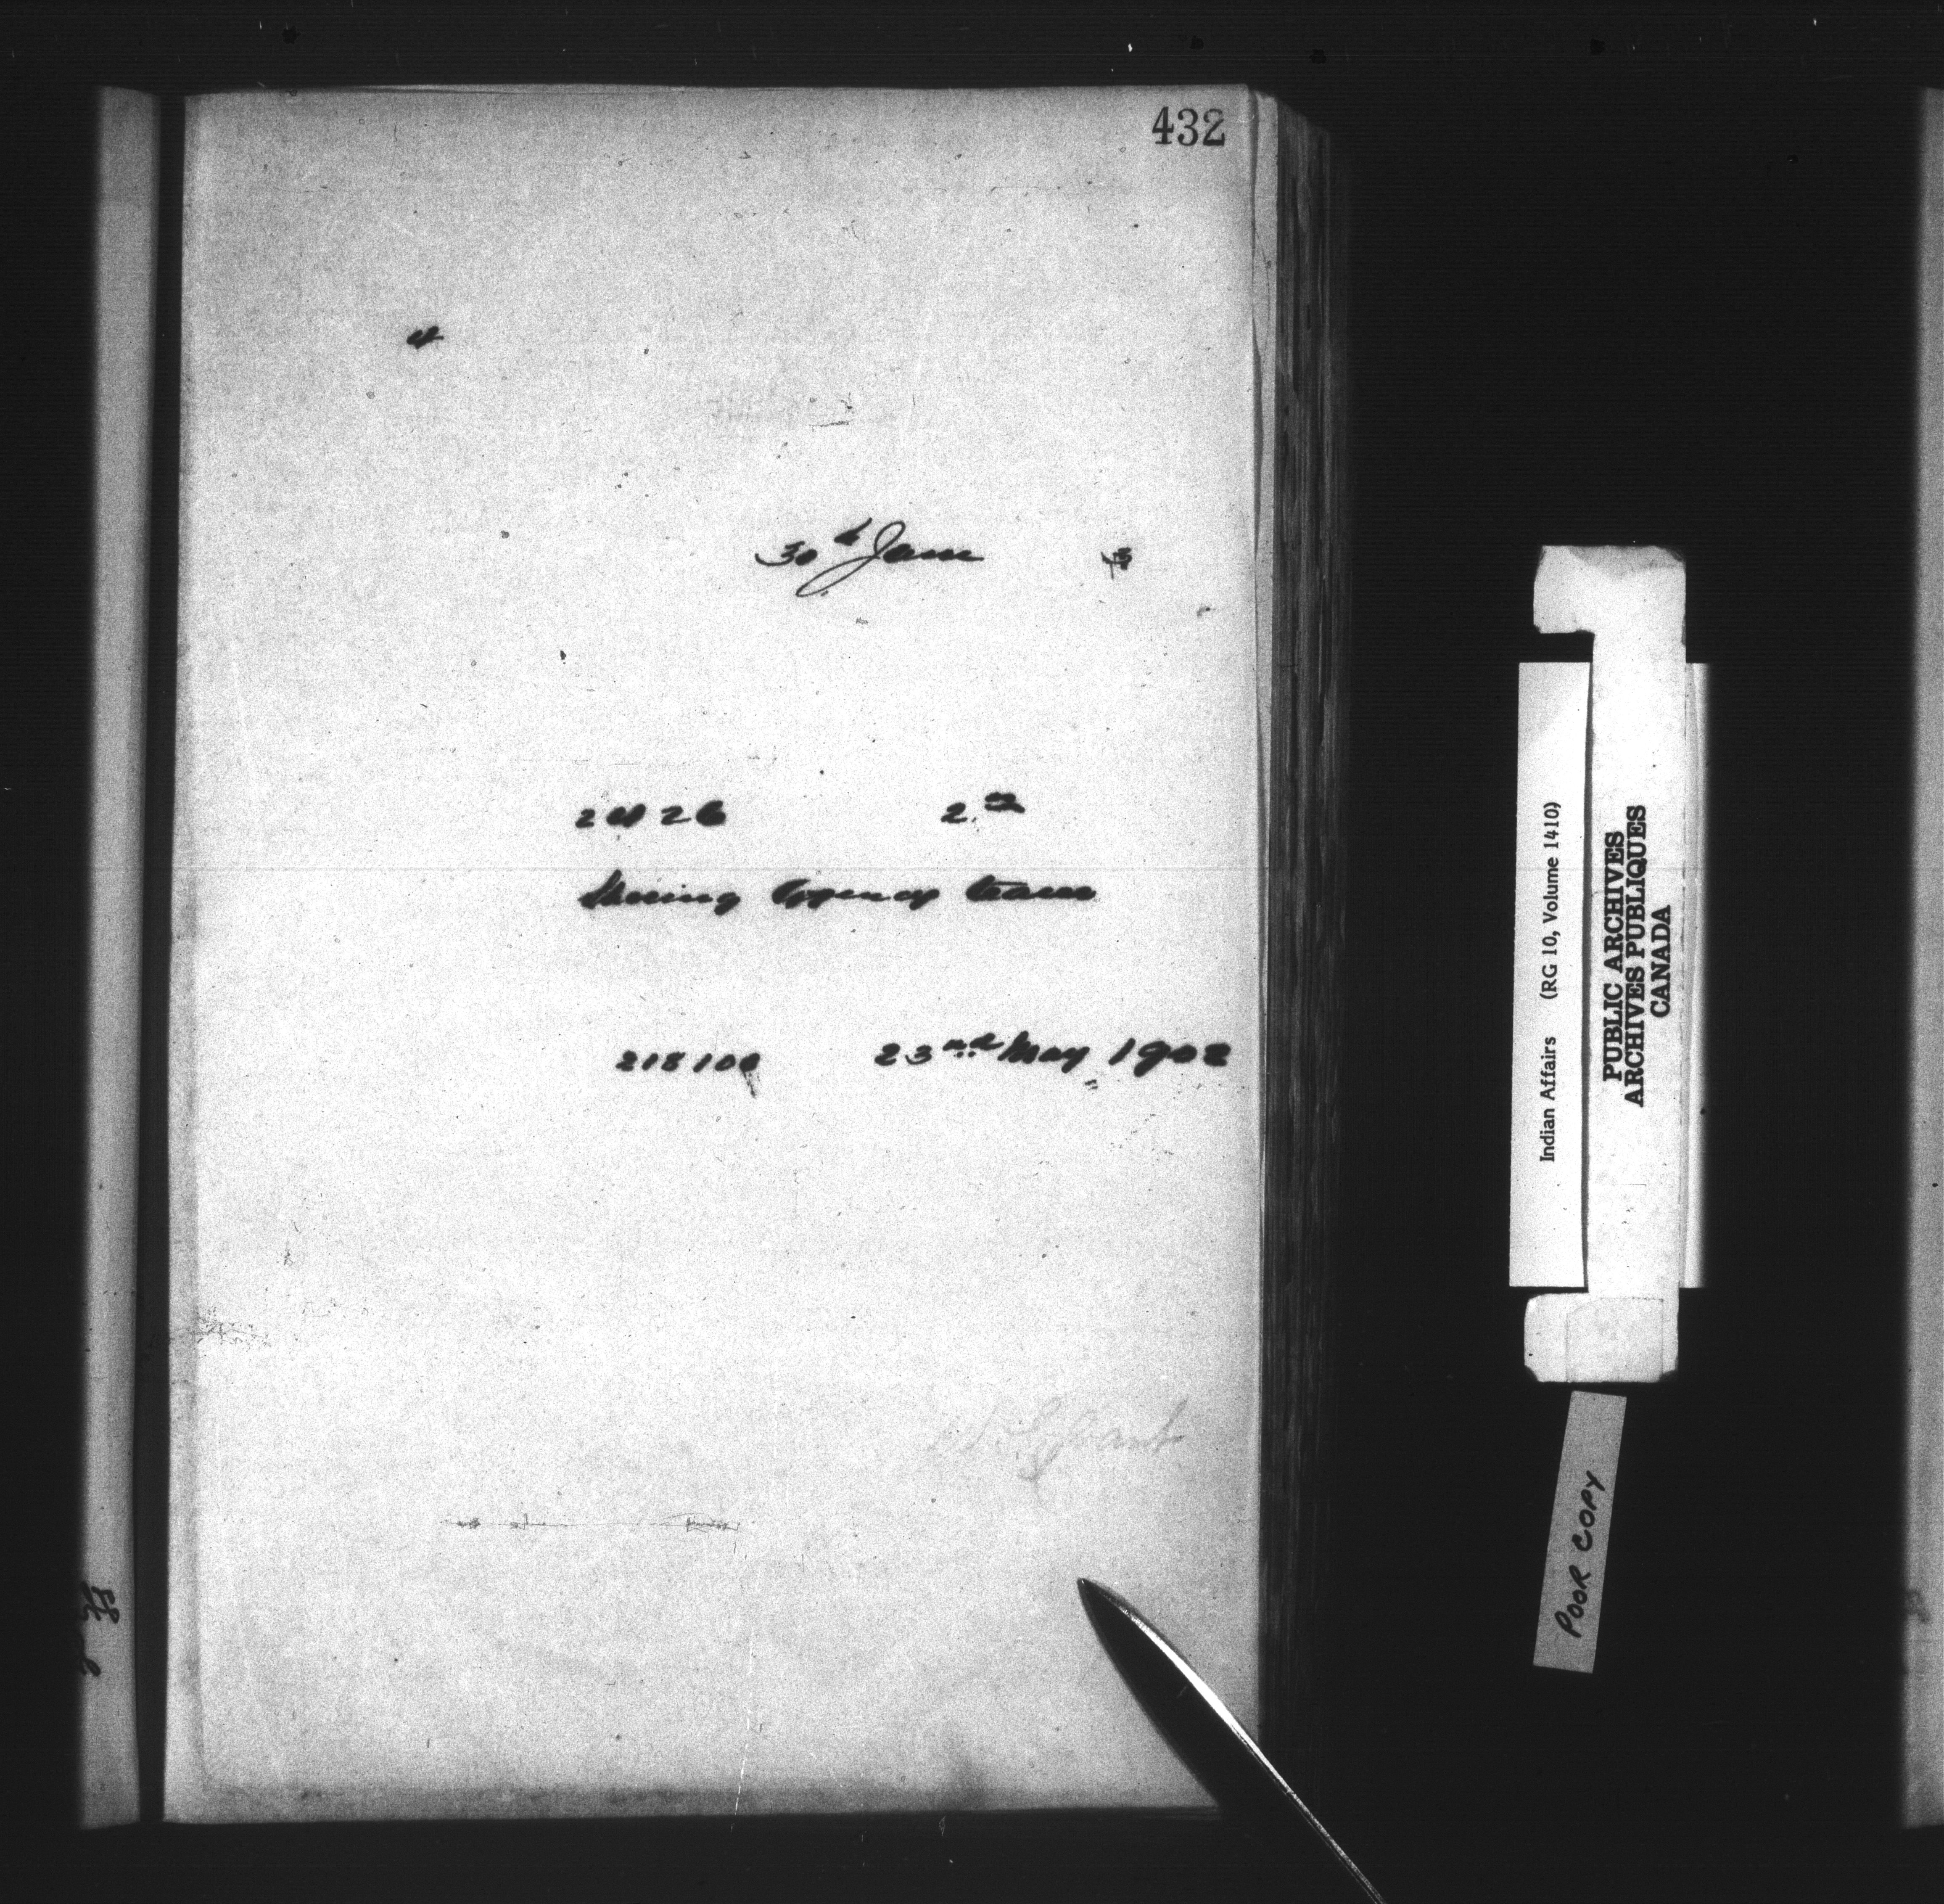 432
4
30th Jany 3
2426 2.00
Shoeing Agency team
218100 23nd May 1902
Indian Affairs (RG 10, Volume 1410)
PUBLIC ARCHIVES
ARCHIVES PUBLIQUES
CANADA
POOR COPY